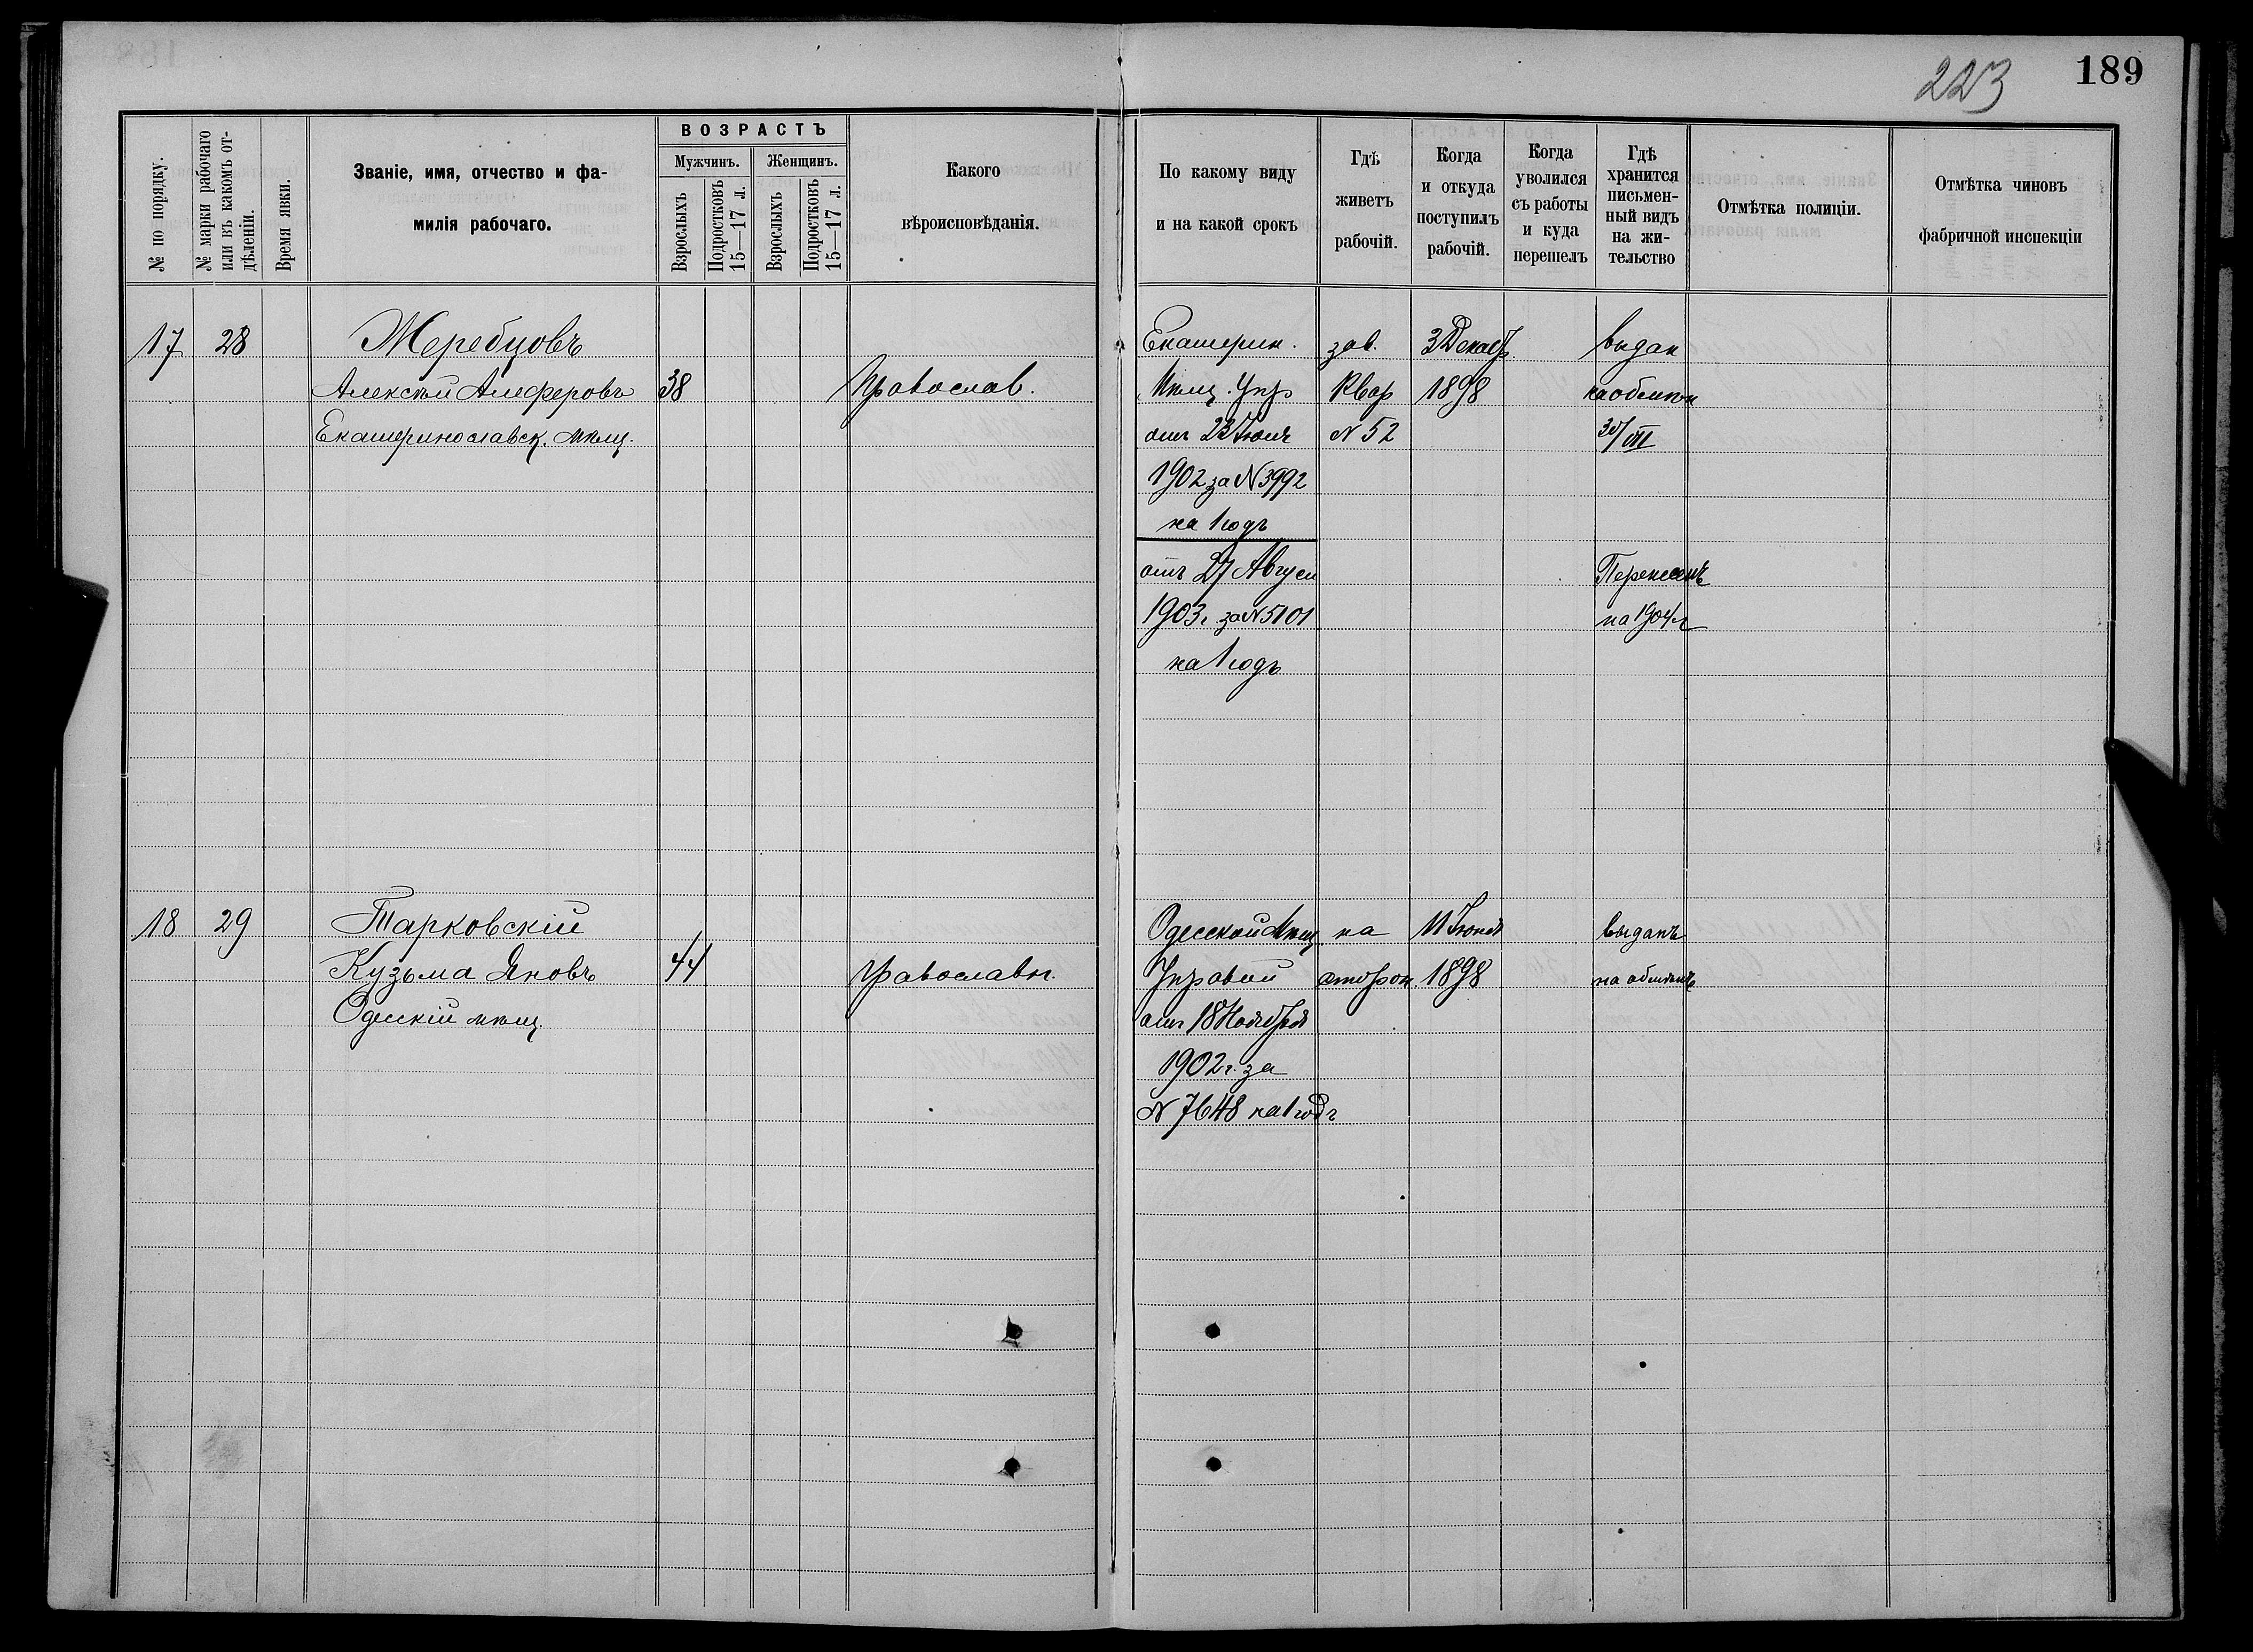 223 189
№ по порядку.
№ марки рабочаго
или въ какомъ от-
дѣленіи.
Время явки.
Званіе, имя, отчество и фа-
милія рабочаго.
ВОЗРАСТЪ
Мужчинъ. Женщинъ.
Взрослыхъ
Подростковъ
15—17 л.
Взрослыхъ
Подростковъ
15—17 л.
Какого
вѣроисповѣданія.
По какому виду
и на какой срокъ
Гдѣ
живетъ
рабочій.
Когда
и откуда
поступилъ
рабочій.
Когда
уволился
съ работы
и куда
перешелъ
Гдѣ
хранится
письмен-
ный видъ
на жи-
тельство
Отмѣтка полиціи.
Отмѣтка чиновъ
фабричной инспекціи
17 28 Жеребцовъ Екатерин. зав. 3 Декабр. выдан
Алексѣй Алферовъ 38 Православ. Мѣщ. Упр Квар 1898 на обмѣн
Екатеринославск. мѣщ. отъ 23 Іюня N 52 30/VII
1902 за N 3992
на 1 годъ
отъ 27 Август Перенесенъ
1903 г. за N 5101 на 1904 г
на 1 годъ
18 29 Тарковскій Одесской Мѣщ на 11 Іюня выданъ
Кузьма Яновъ 44 Православн. Управой сторон 1898 на обмѣнъ
Одесскій мѣщ. отъ 18 Ноября
1902 г. за
N 7648 на 1 годъ